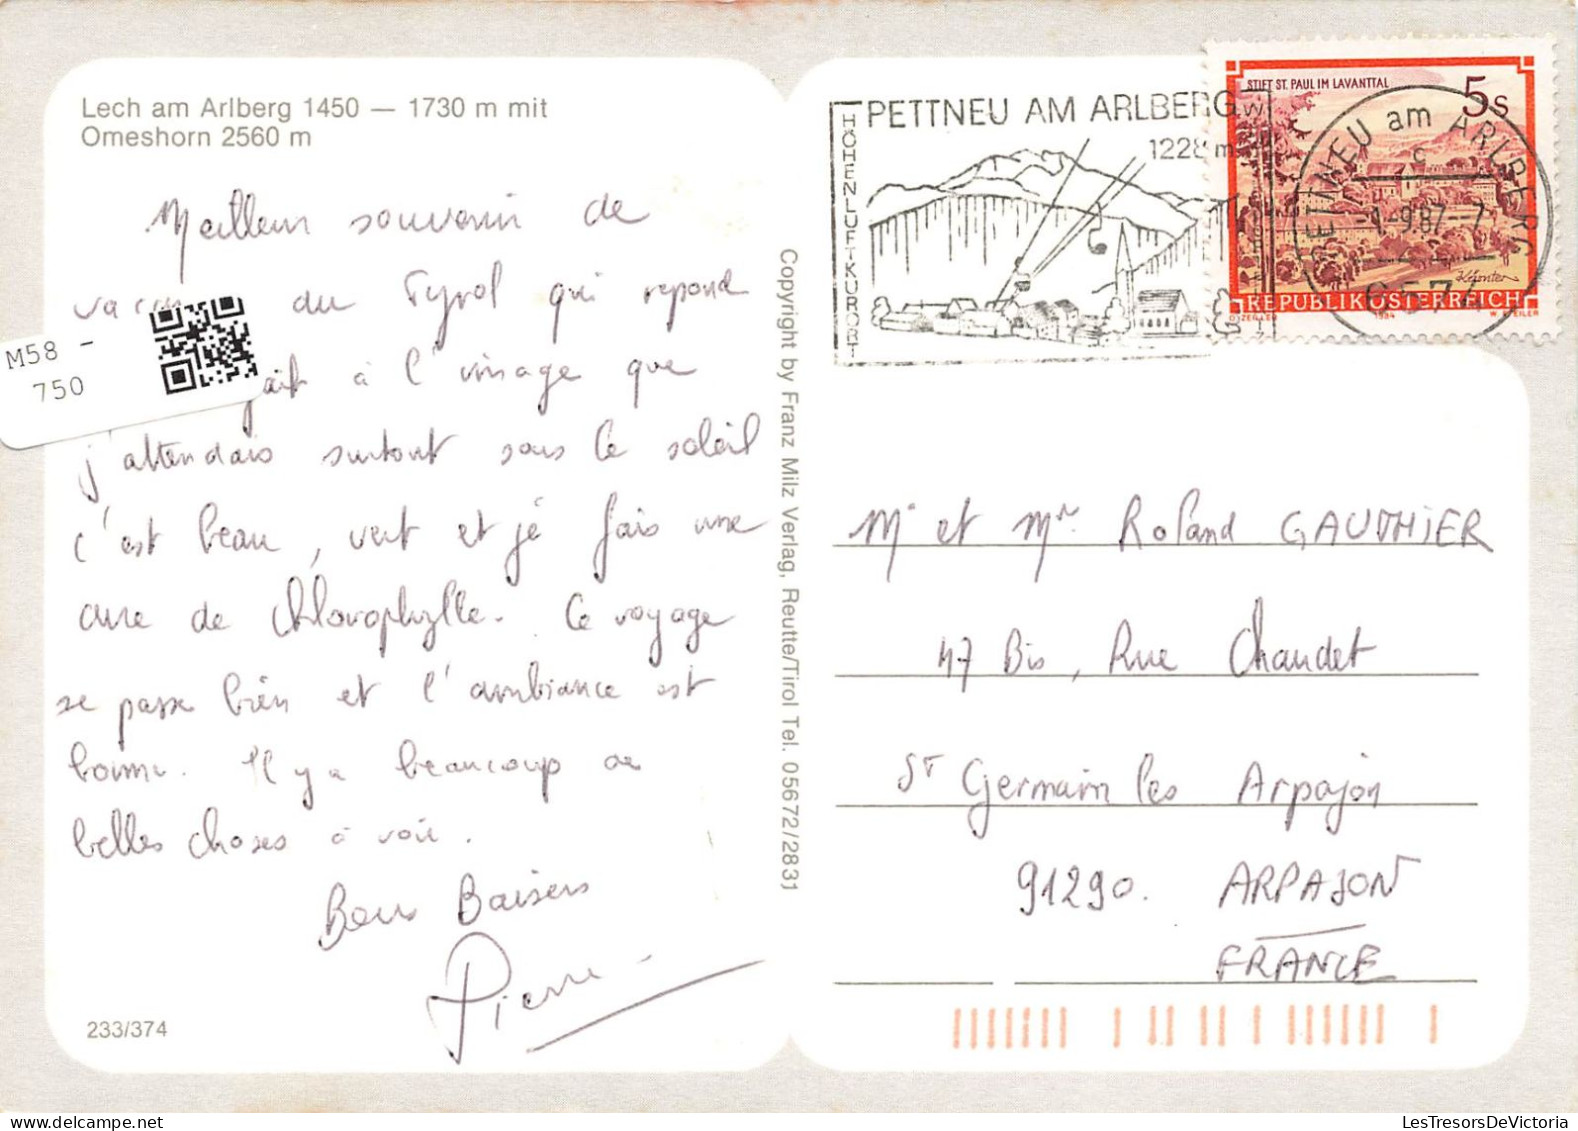 Lech am Arlberg 1450 — 1730 m mit
Omeshorn 2560 m
Meilleur souvenir de
du Tyrol qui repond
à l'image que
j'attendais surtout sous le soleil
c'est beau, vert et je fais une
cure de chlorophylle. Le voyage
se passe bien et l'ambiance est
bonne. Il y a beaucoup de
belles choses à voir.
Bons Baisers
Pierre
233/374
M58 -
750
Copyright by Franz Milz Verlag, Reutte/Tirol Tel. 05672/2831
PETTNEU AM ARLBERG
1228 m
HÖHENLUFTKURORT
STIFT ST. PAUL IM LAVANTTAL
5s
REPUBLIK ÖSTERREICH
1984
PETTNEU am ARLBERG
c
-1-9.87-7
6574
Mr et Mme Roland GAUTHIER
47 Bis, Rue Chaudet
ST Germain les Arpajon
91290. ARPAJON
FRANCE
LesTresorsDeVictoria.com
LesTresorsDeVictoria.com